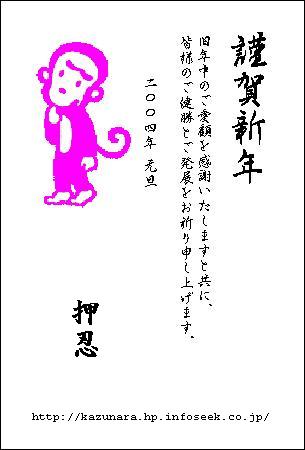 謹賀新年
旧年中のご愛顧を感謝いたしますと共に、
皆様のご健勝とご発展をお祈り申し上げます。
二〇〇四年 元旦
押忍
http://kazunara.hp.infoseek.co.jp/